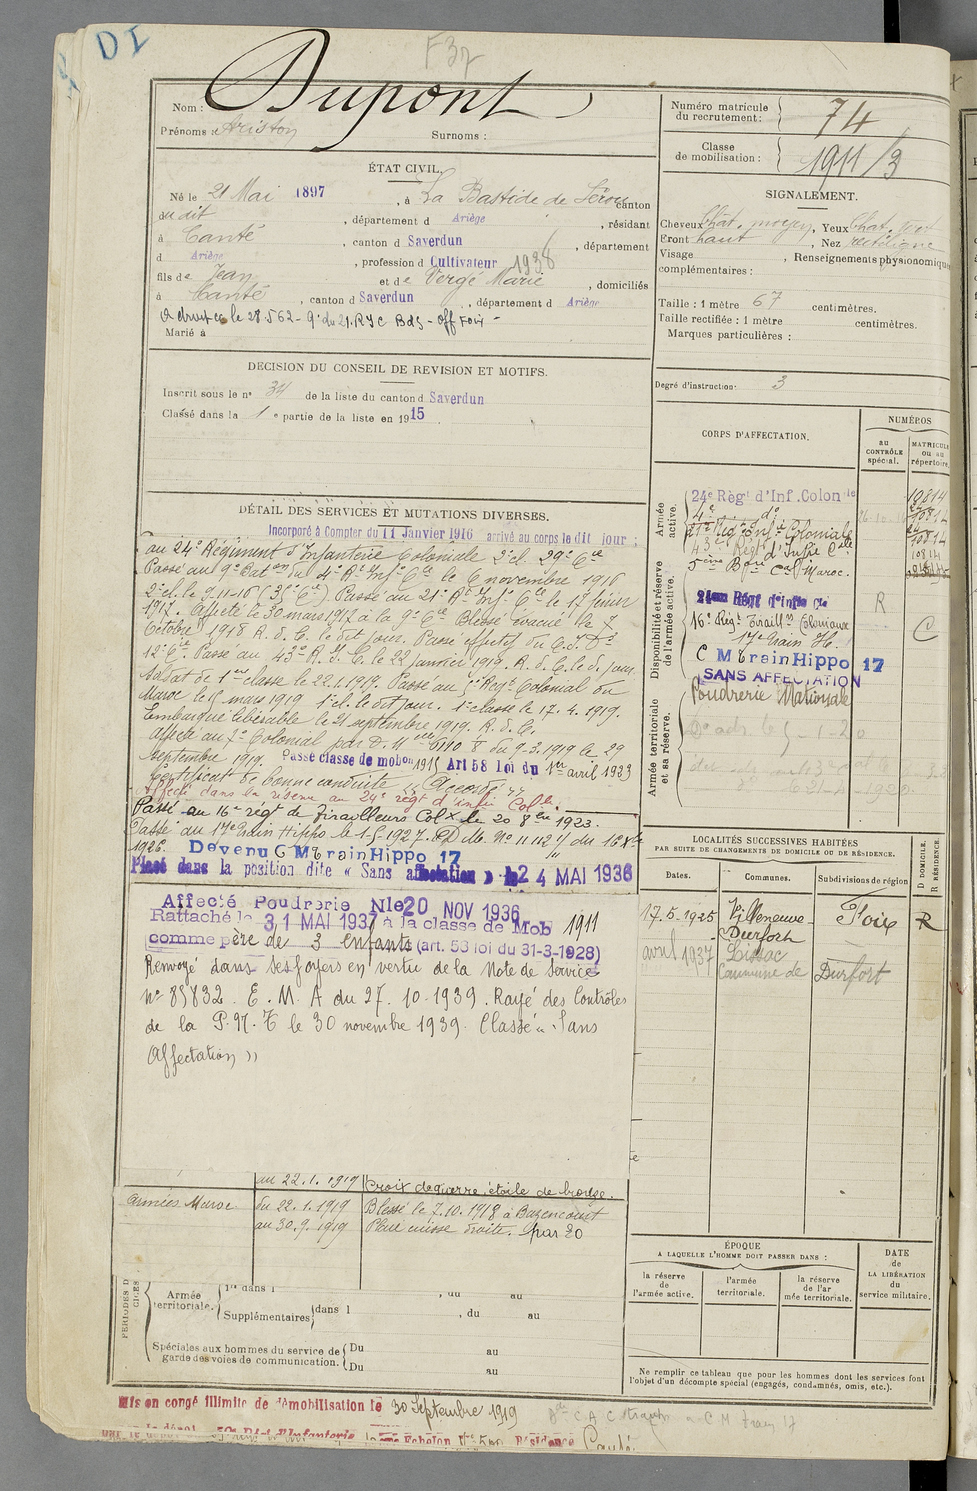 DI
F37
Nom : Dupont
Prénoms : Ariston Surnoms :
ÉTAT CIVIL.
Né le 21 Mai 1897, à La Bastide de Sérou canton
du dit, département d Ariège, résidant
à Canté, canton d Saverdun, département
d Ariège, profession d Cultivateur 1938
fils de Jean et de Vergé Marie, domiciliés
à Canté, canton d Saverdun, département d Ariège
Marié à
DECISION DU CONSEIL DE REVISION ET MOTIFS.
Inscrit sous le n° 34 de la liste du canton d Saverdun
Classé dans la 1e partie de la liste en 1915
DÉTAIL DES SERVICES ET MUTATIONS DIVERSES.
Incorporé à Compter du 11 Janvier 1916 arrivé au corps le dit jour ;
au 24e Régiment d'Infanterie Coloniale 2e cl. 29e Cie
Passé au 9e Baton du 4e Rt Infie Cle le 6 novembre 1916
2e cl. le 9-11-16 (35e Cie) Passé au 21e Rt Infie Cle le 17 février
1917. Affecté le 30 mars 1917 à la 9e Cie Blessé évacué le 7
Octobre 1918 R. d. C. le dit jour. Passé effectif du C.I.D
12e Cie. Passé au 43e R. I. C. le 22 janvier 1919. R. d. C. le d. jour
Soldat de 1ere classe le 22.1.1919. Passé au Regt Colonial du
Maroc le 15 mars 1919 1e cl. le dit jour. 1e classe le 17. 4. 1919.
Embarqué libérable le 21 septembre 1919. R. d. C.
Affecté au 7e Colonial par D. M. 6110 8 du 9-3-1919 le 29
septembre 1919. Passé classe de mobon 1915 Art 58 loi du 1er avril 1923
Certificat de bonne conduite « Accordé »
Affecté dans la réserve au 24e régt d'infie Colle
Passé au 16e régt de Tirailleurs Colx le 20 8bre 1923.
Passé au 17e train Hippo le 1-5-1927. D M. N° 11112 du 16 Xbre
1926. Devenu C M train Hippo 17
Placé dans la position dite « Sans affectation » le 24 MAI 1936
Affecté Poudrerie Nle 20 NOV 1936
Rattaché le 31 MAI 1937 à la classe de Mob 1911
comme père de 3 enfants (art. 58 loi du 31-3-1928)
Renvoyé dans ses foyers en vertu de la Note de Service
n° 85832. E. M. A du 27. 10-1939. Rayé des Contrôles
de la P. N. T le 30 novembre 1939. Classé « Sans
Affectation »
au 22.1.1919 Croix de guerre, étoile de bronze.
armées Maroc du 22.1.1919 Blessé le 7.10.1918 à Bazencourt
au 30.9.1919 Plaie cuisse droite. par EO
Armée territoriale.
Supplémentaires dans l , du au
Spéciales aux hommes du service de garde des voies de communication. Du au
Du au
Mis en congé illimité de démobilisation le 30 Septembre 1919
Numéro matricule du recrutement : 74
Classe de mobilisation : 1911/3
SIGNALEMENT.
Cheveux Chât. moyen, Yeux Chat. vert
Front haut, Nez rectiligne
Visage , Renseignements physionomiques
complémentaires :
Taille : 1 mètre 67 centimètres.
Taille rectifiée : 1 mètre centimètres.
Marques particulières :
Degré d'instruction : 3
CORPS D'AFFECTATION.
NUMÉROS
au CONTRÔLE spécial.
MATRICULE ou au répertoire.
Armée active.
24e Régt d'Inf. Colonle 10814
4e do
21e Régt Infie Coloniale 10814
43e Régt d'Infie Cale 10814
Bon Cal Maroc.
Disponibilité et réserve de l'armée active.
21eme Régt d'infie Cle R
16e Régt Tiraillrs Coloniaux C
17e train H.
C M train Hippo 17
SANS AFFECTATION
Armée territoriale et sa réserve.
Poudrerie Nationale
LOCALITÉS SUCCESSIVES HABITÉES
PAR SUITE DE CHANGEMENTS DE DOMICILE OU DE RÉSIDENCE.
D DOMICILE.
R RÉSIDENCE.
Dates. Communes. Subdivisions de région
17-5-1925 Villeneuve-Durfort Foix R
avril 1937 Lissac
Commune de Durfort
ÉPOQUE
A LAQUELLE L'HOMME DOIT PASSER DANS :
la réserve de l'armée active.
l'armée territoriale.
la réserve de l'armée territoriale.
DATE
de
LA LIBÉRATION
du
service militaire.
Ne remplir ce tableau que pour les hommes dont les services font
l'objet d'un décompte spécial (engagés, condamnés, omis, etc.).